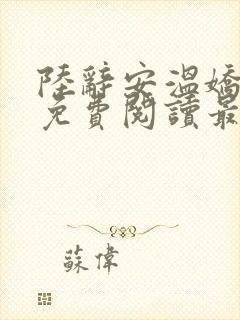 陸辭安溫嬌
免費閱讀最
蘇偉